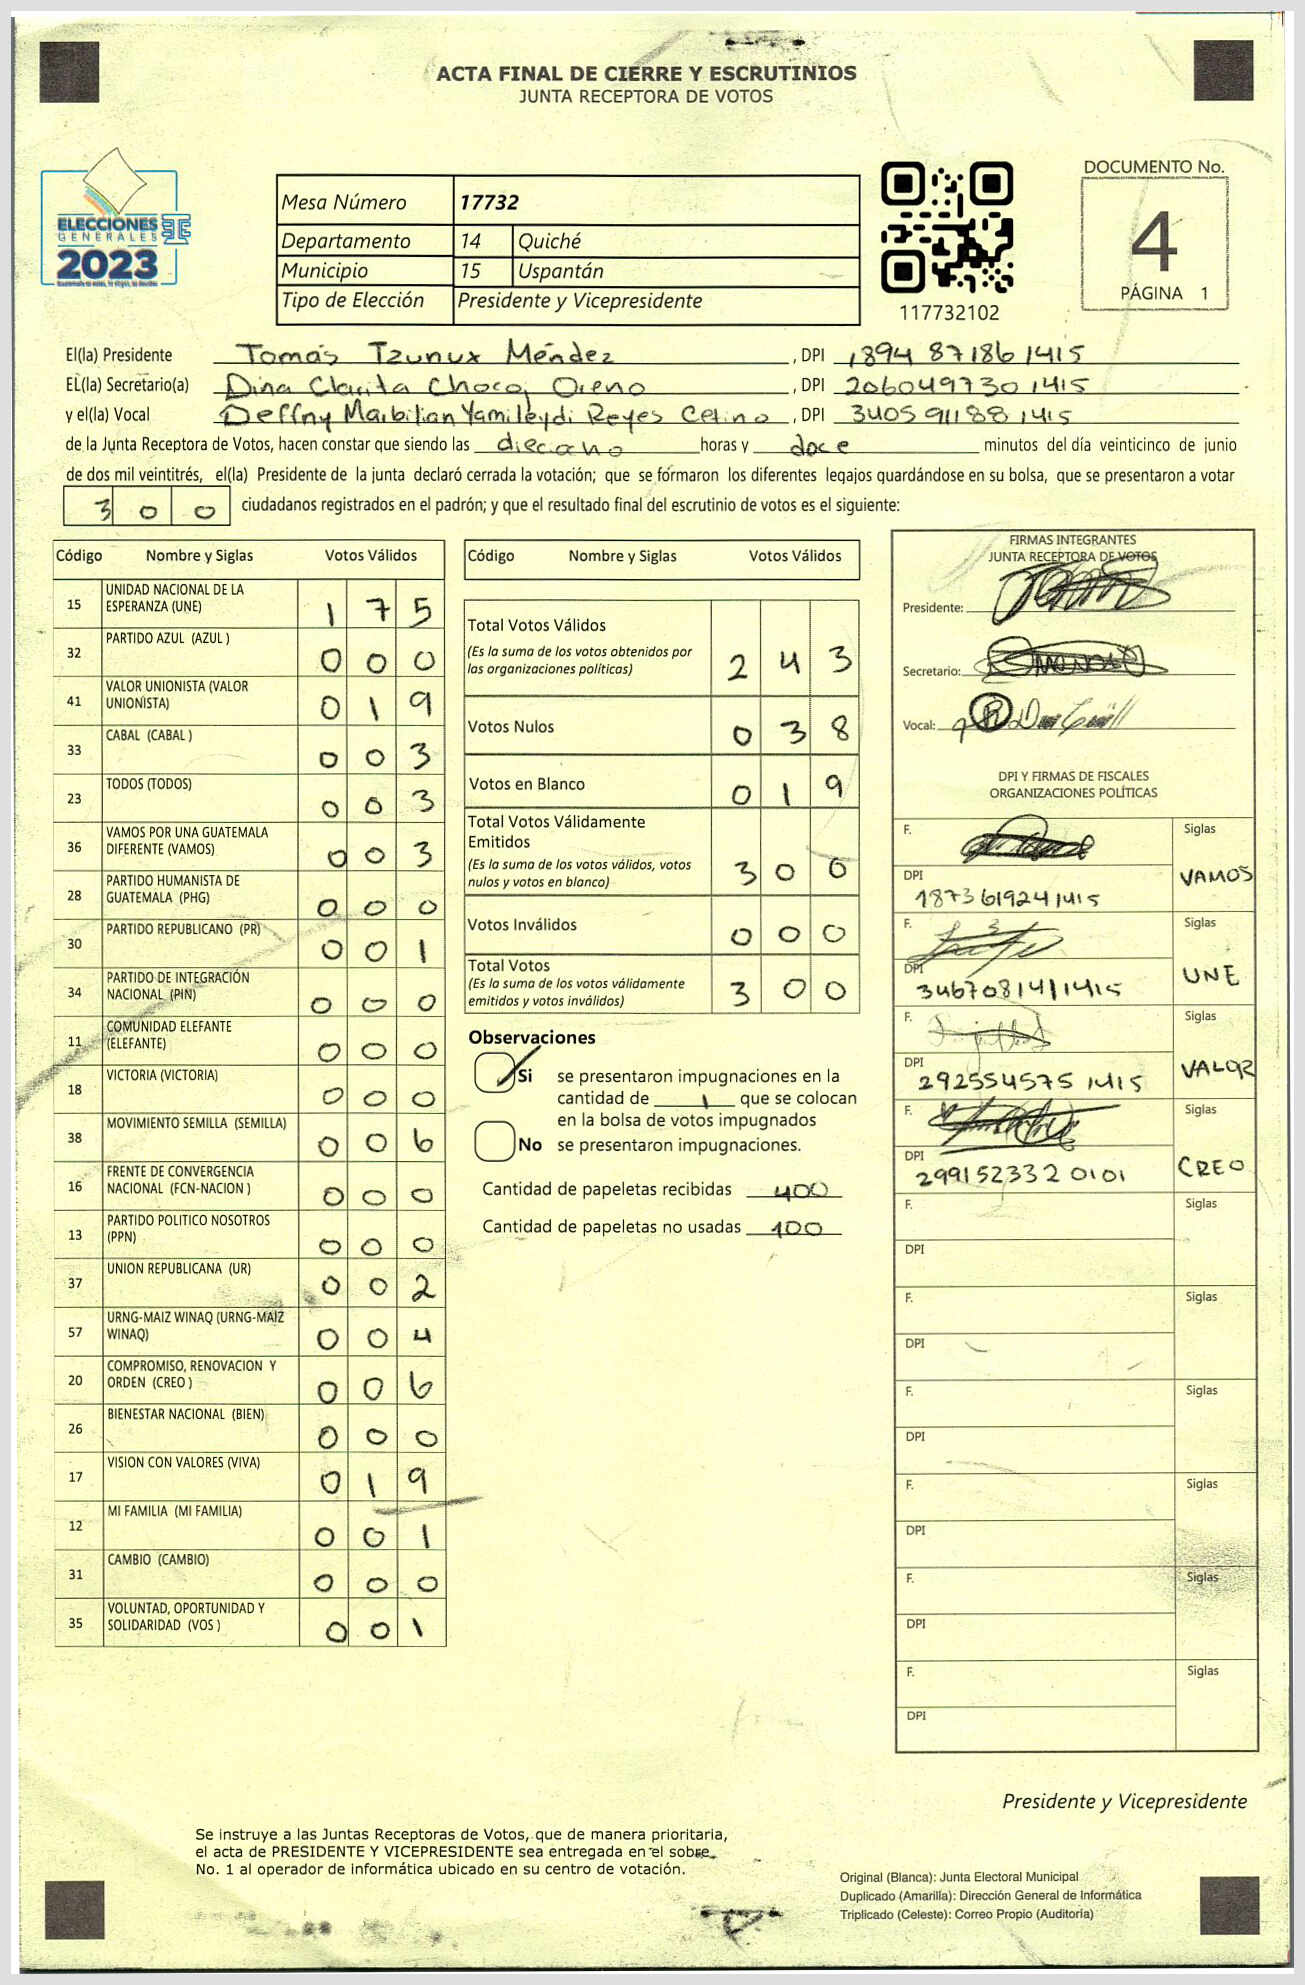 ACTA FINAL DE CIERRE Y ESCRUTINIOS
JUNTA RECEPTORA DE VOTOS
ELECCIONES
GENERALES
2023
Mesa Número 17732
Departamento 14 Quiché
Municipio 15 Uspantán
Tipo de Elección Presidente y Vicepresidente
117732102
DOCUMENTO No.
4
PÁGINA 1
El(la) Presidente Tomás Tzunux Méndez, DPI 1894 87186 1415
EL(la) Secretario(a) Dina Clarita Chocoj Oreno, DPI 206049730 1415
y el(la) Vocal Deffny Marbilian Yamileydi Reyes Cetino, DPI 3405 91188 1415
de la Junta Receptora de Votos, hacen constar que siendo las dieciano horas y doce minutos del día veinticinco de junio
de dos mil veintitrés, el(la) Presidente de la junta declaró cerrada la votación; que se formaron los diferentes legajos guardándose en su bolsa, que se presentaron a votar
300 ciudadanos registrados en el padrón; y que el resultado final del escrutinio de votos es el siguiente:
Código Nombre y Siglas Votos Válidos
15 UNIDAD NACIONAL DE LA ESPERANZA (UNE) 1 7 5
32 PARTIDO AZUL (AZUL ) 0 0 0
41 VALOR UNIONISTA (VALOR UNIONISTA) 0 1 9
33 CABAL (CABAL ) 0 0 3
23 TODOS (TODOS) 0 0 3
36 VAMOS POR UNA GUATEMALA DIFERENTE (VAMOS) 0 0 3
28 PARTIDO HUMANISTA DE GUATEMALA (PHG) 0 0 0
30 PARTIDO REPUBLICANO (PR) 0 0 1
34 PARTIDO DE INTEGRACIÓN NACIONAL (PIN) 0 0 0
11 COMUNIDAD ELEFANTE (ELEFANTE) 0 0 0
18 VICTORIA (VICTORIA) 0 0 0
38 MOVIMIENTO SEMILLA (SEMILLA) 0 0 6
16 FRENTE DE CONVERGENCIA NACIONAL (FCN-NACION ) 0 0 0
13 PARTIDO POLITICO NOSOTROS (PPN) 0 0 0
37 UNION REPUBLICANA (UR) 0 0 2
57 URNG-MAIZ WINAQ (URNG-MAIZ WINAQ) 0 0 4
20 COMPROMISO, RENOVACION Y ORDEN (CREO ) 0 0 6
26 BIENESTAR NACIONAL (BIEN) 0 0 0
17 VISION CON VALORES (VIVA) 0 1 9
12 MI FAMILIA (MI FAMILIA) 0 0 1
31 CAMBIO (CAMBIO) 0 0 0
35 VOLUNTAD, OPORTUNIDAD Y SOLIDARIDAD (VOS ) 0 0 1
Código Nombre y Siglas Votos Válidos
Total Votos Válidos 2 4 3
(Es la suma de los votos obtenidos por
las organizaciones políticas)
Votos Nulos 0 3 8
Votos en Blanco 0 1 9
Total Votos Válidamente
Emitidos 3 0 0
(Es la suma de los votos válidos, votos
nulos y votos en blanco)
Votos Inválidos 0 0 0
Total Votos 3 0 0
(Es la suma de los votos válidamente
emitidos y votos inválidos)
Observaciones
Si se presentaron impugnaciones en la
cantidad de 1 que se colocan
en la bolsa de votos impugnados
No se presentaron impugnaciones.
Cantidad de papeletas recibidas 400
Cantidad de papeletas no usadas 100
FIRMAS INTEGRANTES
JUNTA RECEPTORA DE VOTOS
Presidente:
Secretario:
Vocal:
DPI Y FIRMAS DE FISCALES
ORGANIZACIONES POLÍTICAS
F. Siglas
DPI 1873619241415 VAMOS
F. Siglas
DPI 3467081411415 UNE
F. Siglas
DPI 292554575 1415 VALOR
F. Siglas
DPI 299152332 0101 CREO
F. Siglas
DPI
F. Siglas
DPI
F. Siglas
DPI
F. Siglas
DPI
F. Siglas
DPI
F. Siglas
DPI
Presidente y Vicepresidente
Se instruye a las Juntas Receptoras de Votos, que de manera prioritaria,
el acta de PRESIDENTE Y VICEPRESIDENTE sea entregada en el sobre
No. 1 al operador de informática ubicado en su centro de votación.
Original (Blanca): Junta Electoral Municipal
Duplicado (Amarilla): Dirección General de Informática
Triplicado (Celeste): Correo Propio (Auditoria)